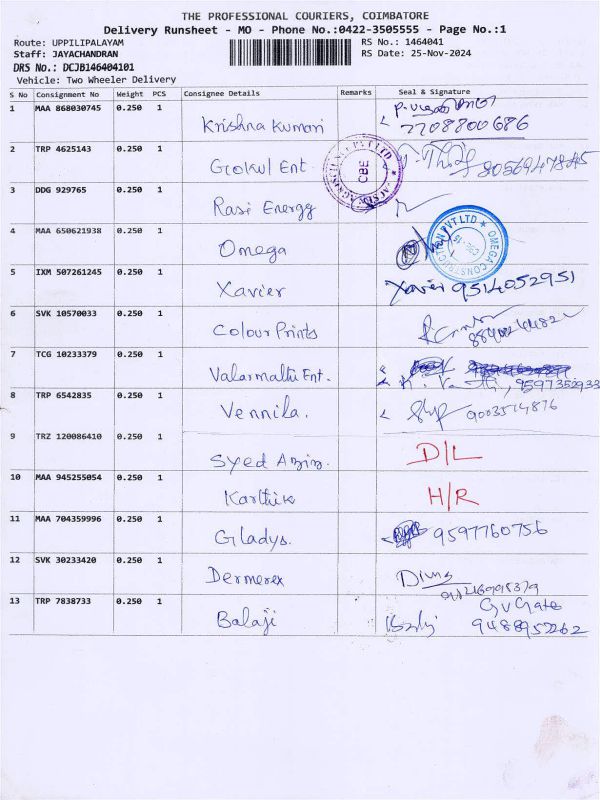 THE PROFESSIONAL COURIERS, COIMBATORE
Delivery Runsheet - MO - Phone No.:0422-3505555 - Page No.:1
Route: UPPILIPALAYAM RS No.: 1464041
Staff: JAYACHANDRAN RS Date: 25-Nov-2024
DRS No.: DCJB146404101
Vehicle: Two Wheeler Delivery
S No Consignment No Weight PCS Consignee Details Remarks Seal & Signature
1 MAA 868030745 0.250 1
Krishna Kumari 7708800686
2 TRP 4625143 0.250 1
Gokul Ent CBE
3 DDG 929765 0.250 1
Rasi Energy
4 MAA 650621938 0.250 1
Omega OMEGA CONSTRUCTION PVT LTD CBE-15
5 IXM 507261245 0.250 1
Xavier Xavier 9514052951
6 SVK 10570033 0.250 1
Colour Prints
7 TCG 10233379 0.250 1
Valarmathi Ent. 9597352933
8 TRP 6542835 0.250 1
Vennila. 9003514876
9 TRZ 120086410 0.250 1
Syed Aziz. D/L
10 MAA 945255054 0.250 1
Karthik H/R
11 MAA 704359996 0.250 1
Gladys. 9597760756
12 SVK 30233420 0.250 1
Dermerex
13 TRP 7838733 0.250 1
Balaji 9488957262